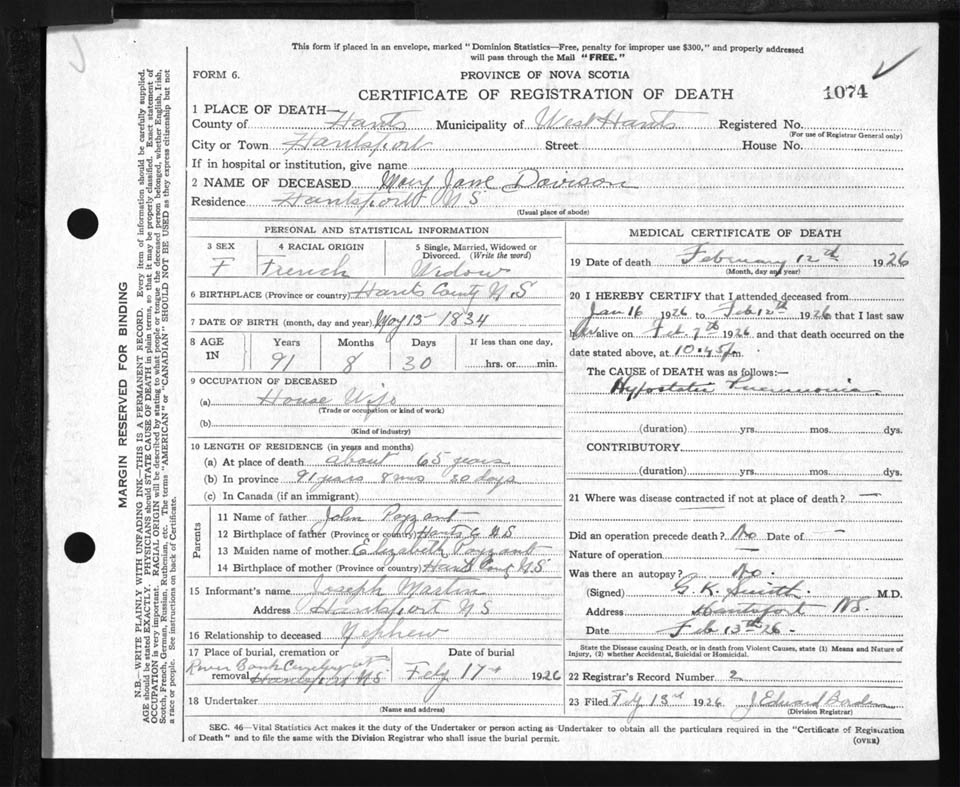 This form if placed in an envelope, marked "Dominion Statistics—Free, penalty for improper use $300," and properly addressed
will pass through the Mail "FREE."
FORM 6.
PROVINCE OF NOVA SCOTIA
CERTIFICATE OF REGISTRATION OF DEATH
1074
1 PLACE OF DEATH—
County of Hants Municipality of West Hants Registered No.
(For use of Registrar General only)
City or Town Hantsport Street House No.
If in hospital or institution, give name
2 NAME OF DECEASED Mary Jane Davison
Residence Hantsport N S
(Usual place of abode)
PERSONAL AND STATISTICAL INFORMATION
3 SEX
F
4 RACIAL ORIGIN
French
5 Single, Married, Widowed or
Divorced. (Write the word)
Widow
6 BIRTHPLACE (Province or country) Hants County N.S
7 DATE OF BIRTH (month, day and year) May 15 1834
8 AGE
IN
Years Months Days If less than one day,
91 8 30 hrs. or min.
9 OCCUPATION OF DECEASED
(a) House Wife
(Trade or occupation or kind of work)
(b)
(Kind of industry)
10 LENGTH OF RESIDENCE (in years and months)
(a) At place of death about 65 years
(b) In province 91 years 8 mos 30 days
(c) In Canada (if an immigrant)
Parents
11 Name of father John Payzant
12 Birthplace of father (Province or country) Hants C N S
13 Maiden name of mother Elizabeth Payzant
14 Birthplace of mother (Province or country) Hants County N.S
15 Informant's name Joseph Martin
Address Hantsport N S
16 Relationship to deceased Nephew
17 Place of burial, cremation or
River Bank Cemetery at
removal Hantsport N S
Date of burial
Feby 17 1926
18 Undertaker
(Name and address)
MEDICAL CERTIFICATE OF DEATH
19 Date of death February 12th 1926
(Month, day and year)
20 I HEREBY CERTIFY that I attended deceased from
Jan 16 1926 to Feb 12th 1926 that I last saw
her alive on Feb. 7th 1926 and that death occurred on the
date stated above, at 10.45 pm.
The CAUSE of DEATH was as follows:—
Hypostatic Pneumonia
(duration) yrs. mos. dys.
CONTRIBUTORY.
(duration) yrs. mos. dys.
21 Where was disease contracted if not at place of death? —
Did an operation precede death? No Date of —
Nature of operation —
Was there an autopsy? No.
(Signed) G. K. Smith M.D.
Address Hantsport NS.
Date Feb 13th 26.
State the Disease causing Death, or in death from Violent Causes, state (1) Means and Nature of
Injury, (2) whether Accidental, Suicidal or Homicidal.
22 Registrar's Record Number 2
23 Filed Feby 13rd 1926 J Edward
(Division Registrar)
SEC. 46—Vital Statistics Act makes it the duty of the Undertaker or person acting as Undertaker to obtain all the particulars required in the "Certificate of Registration
of Death" and to file the same with the Division Registrar who shall issue the burial permit.
(OVER)
MARGIN RESERVED FOR BINDING
N.B.—WRITE PLAINLY WITH UNFADING INK—THIS IS A PERMANENT RECORD. Every item of information should be carefully supplied.
AGE should be stated EXACTLY. PHYSICIANS should STATE CAUSE OF DEATH in plain terms, so that it may be properly classified. Exact statement of
OCCUPATION is very important. RACIAL ORIGIN will be described by stating to what people or tongue the deceased person belonged, whether English, Irish,
Scotch, French, German, Russian, Ruthenian, etc. The terms "AMERICAN" or "CANADIAN" SHOULD NOT BE USED as they express citizenship but not
a race or people. See instructions on back of Certificate.